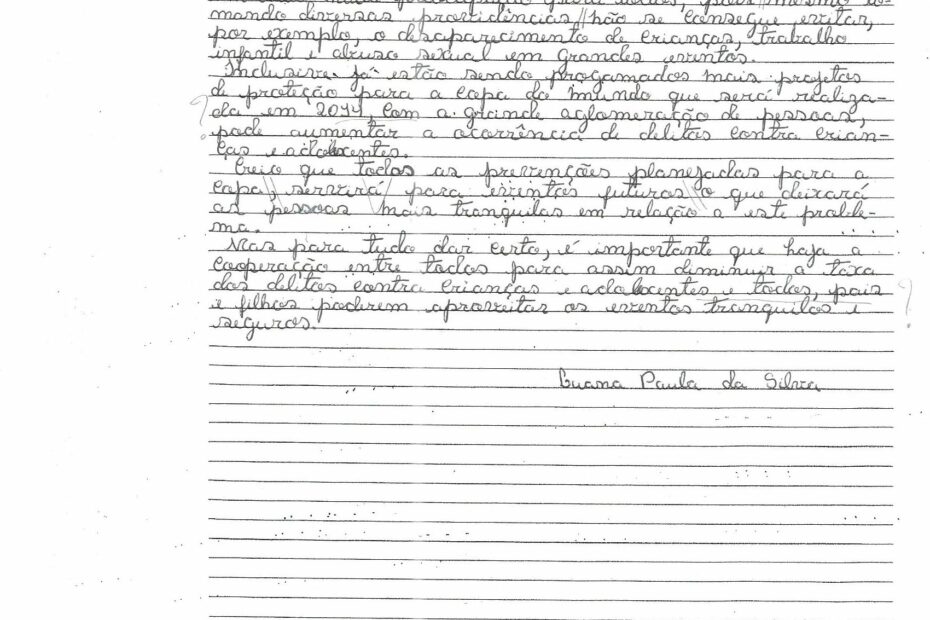 mando diversas providências // não se consegue evitar,
por exemplo, o desaparecimento de crianças, trabalho
infantil e abuso sexual em grandes eventos.
Inclusive já estão sendo progamados mais projetos
? de proteção para a copa do mundo que será realiza-
da em 2014, com a grande aglomeração de pessoas,
pode aumentar a ocorrência de delitos contra crian-
ças e adolecentes.
Creio que todas as prevenções planejadas para a
copa // servirá para eventos futuros // o que deixará
as pessoas mais tranquilas em relação a este proble-
ma.
Mas para tudo dar certo, é importante que haja a
cooperação entre todos para assim diminuir a taxa
dos delitos contra crianças e adolecentes e todos, pais ?
e filhos poderem aproveitar os eventos tranquilos e
seguros.
Luana Paula da Silva